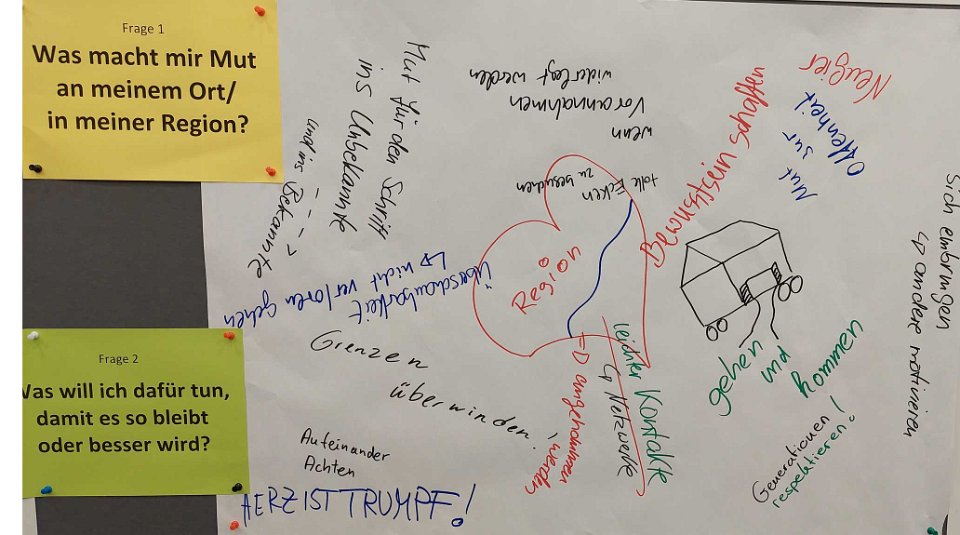 Frage 1
Was macht mir Mut
an meinem Ort/
in meiner Region?
Frage 2
Was will ich dafür tun,
damit es so bleibt
oder besser wird?
Mut für den Schritt
ins Unbekannte
und ins Bekannte
Überschaubarkeit
↳ nicht verloren gehen
Grenzen
überwinden!
Aufeinander
Achten
HERZ IST TRUMPF!
wenn
Vorannahmen
widerlegt werden
tolle Ecken
zu besuchen
Region
=> angenommen
werden
leichter Kontakte
↳ Netzwerke
Bewusstsein schaffen
Neugier
Mut zur
Offenheit
gehen
und
kommen
Generationen
respektieren!
Sich einbringen
↳ andere motivieren